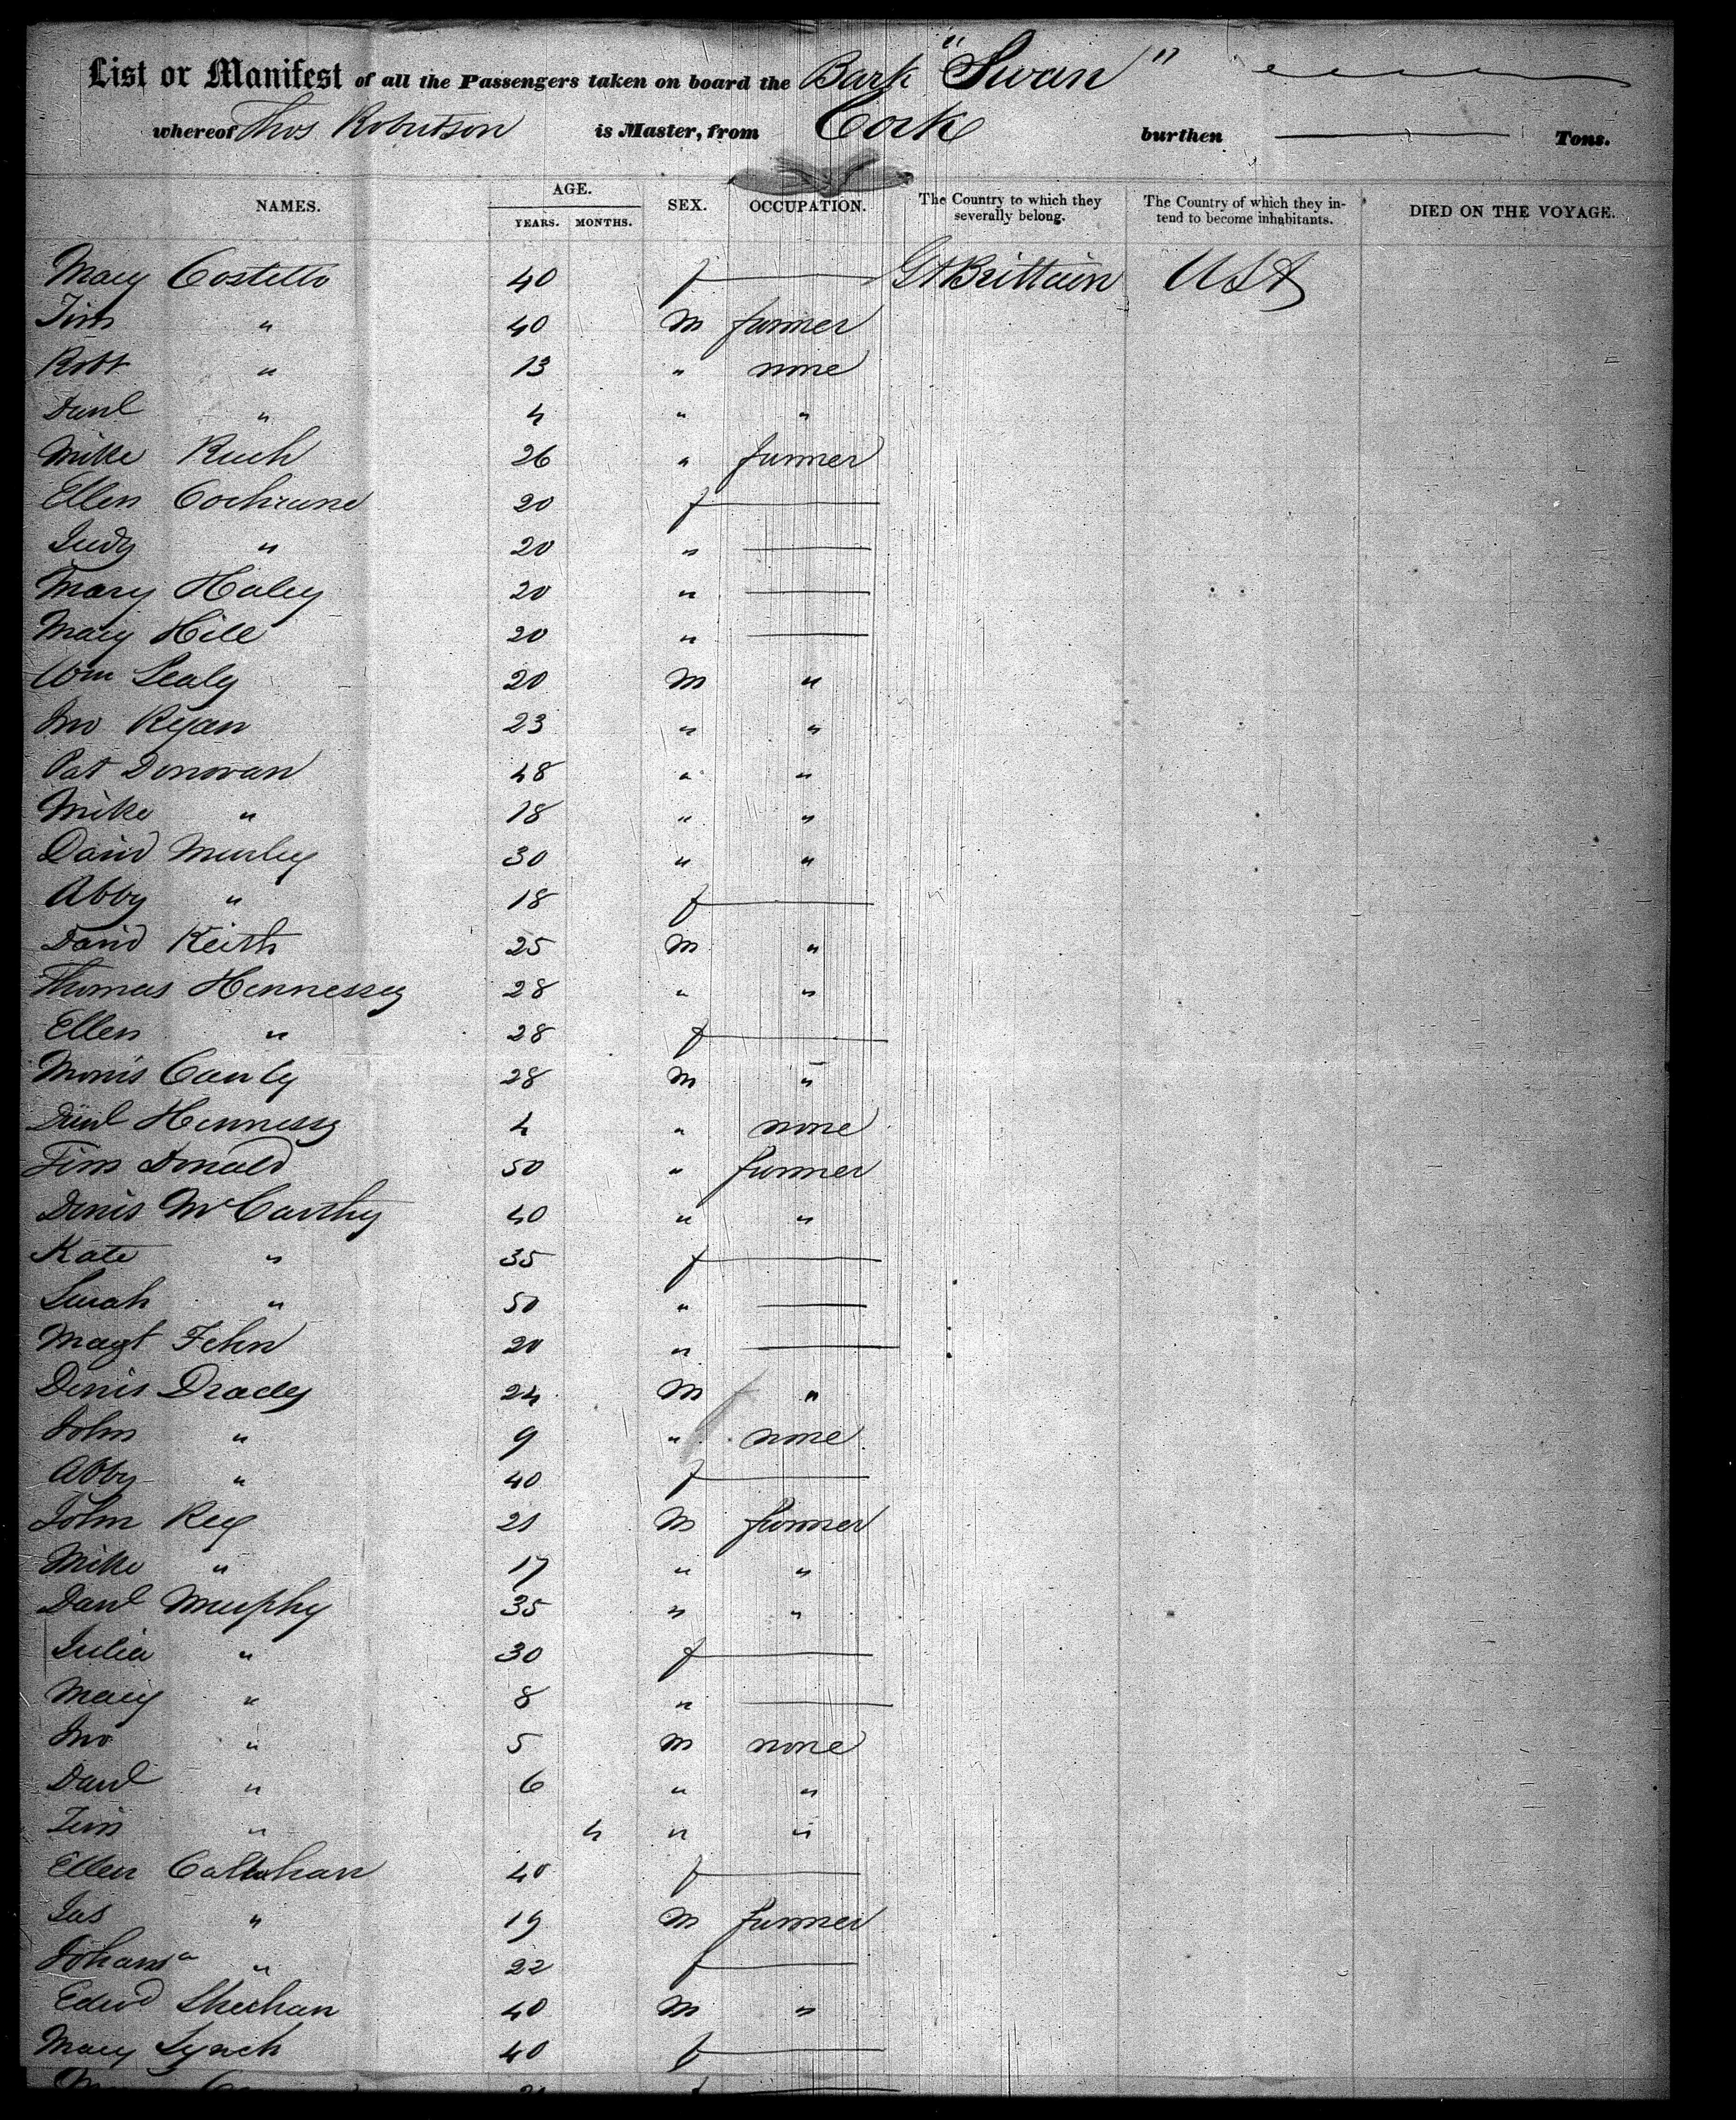 List or Manifest of all the Passengers taken on board the Bark "Swan"
whereof Thos Robertson is Master, from Cork burthen Tons.
NAMES. AGE. YEARS. MONTHS. SEX. OCCUPATION. The Country to which they severally belong. The Country of which they intend to become inhabitants. DIED ON THE VOYAGE.
Mary Costello 40 f Gt Brittain USA
Tim " 40 M farmer
Robt " 13 " none
Danl " 4 " "
Mike 26 " farmer
Ellen Cochrane 20 f
Judy " 20 "
Mary Haley 20 "
Mary Hill 20 "
Wm Sealy 20 M "
Jno Ryan 23 " "
Pat Donovan 48 " "
Mike " 18 " "
David Murley 30 " "
Abby " 18 f
David Keith 25 M "
Thomas Hennessey 28 " "
Ellen " 28 f
Morris 28 M "
Danl Hennessy 4 " none
Tim Donald 50 " farmer
Denis McCarthy 40 " "
Kate " 35 f
Sarah " 50 "
Magt Fehn 20 "
Denis Drady 24 M "
John " 9 " none
Abby " 40 f
John 21 M farmer
Mike " 17 " "
Danl Murphy 35 " "
Julia " 30 f
Mary " 8 "
Jno " 5 M none
Danl " 6 " "
Tim " 4 " "
Ellen Callahan 40 f
Jas " 19 M farmer
Johana " 22 f
Edwd Sheehan 40 M "
Mary Lynch 40 f